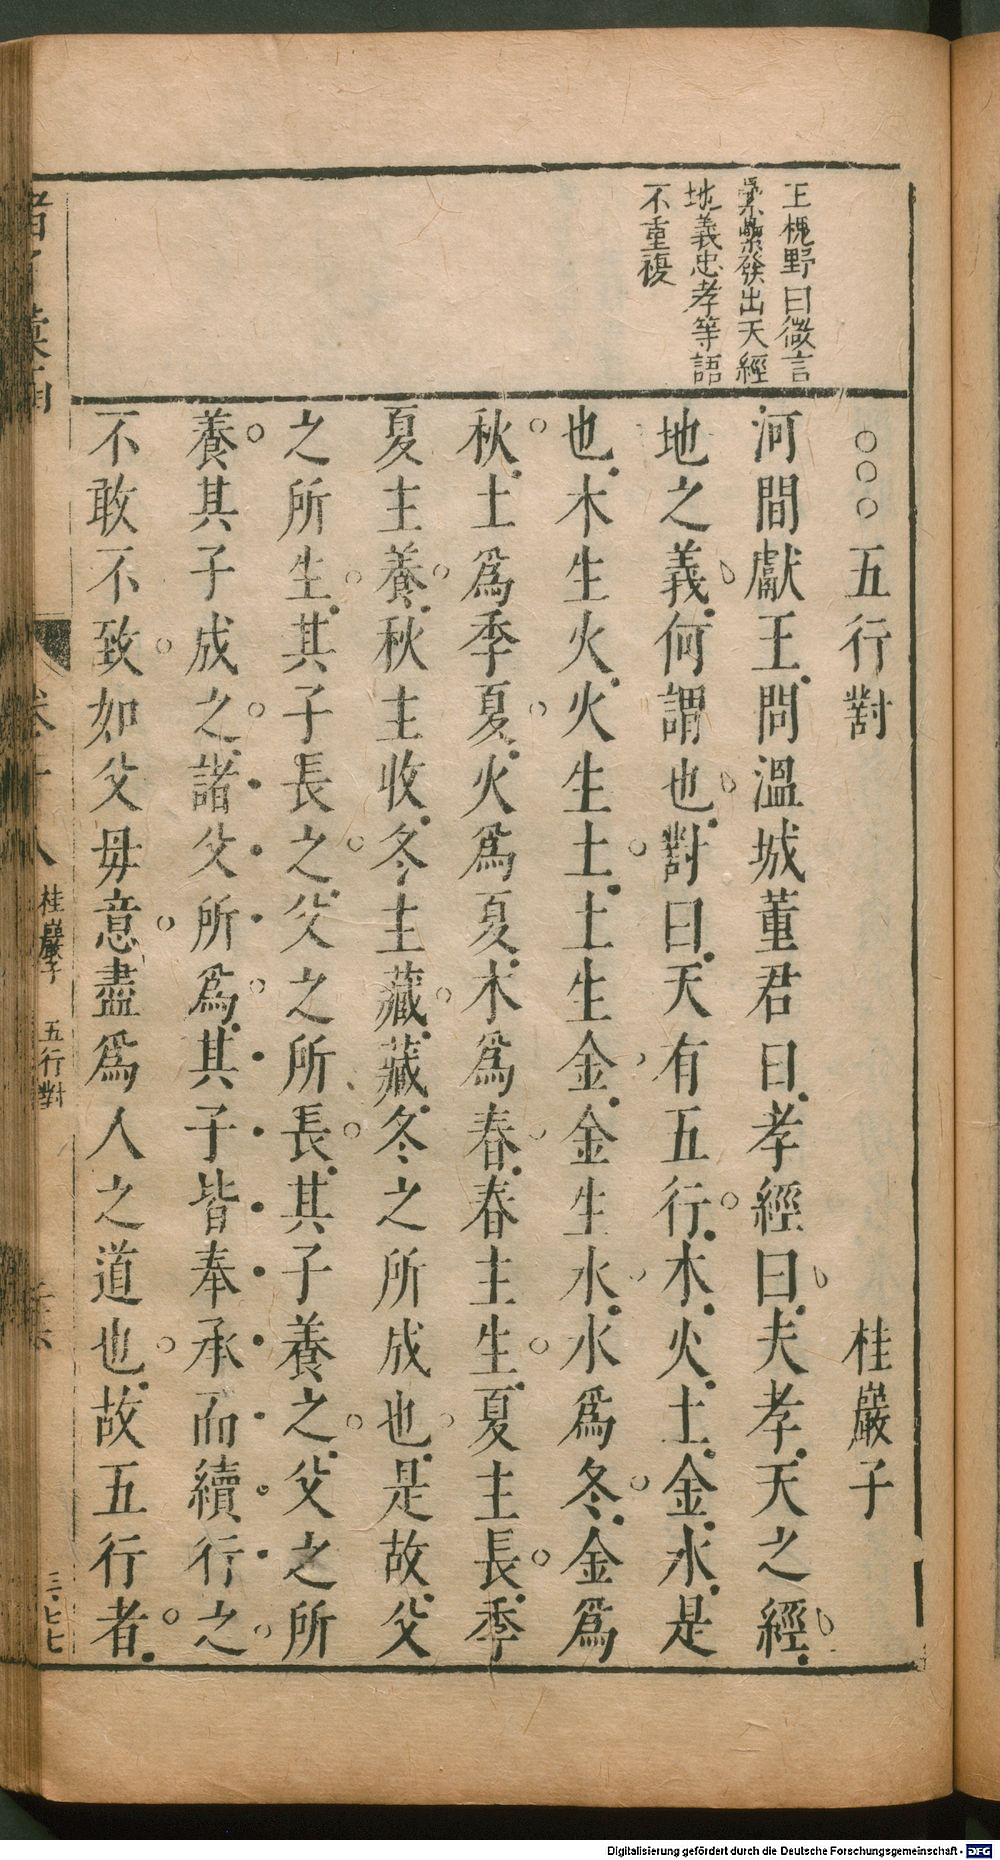 王槐野曰微言
纍纍發出天經
地義忠孝等語
不重複
○○○五行對 桂巖子
河間獻王問溫城董君曰孝經曰夫孝天之經
地之義何謂也對曰天有五行木火土金水是
也木生火火生土土生金金生水水為冬金為
秋土為季夏火為夏木為春春主生夏主長季
夏主養秋主收冬主藏藏冬之所成也是故父
之所生其子長之父之所長其子養之父之所
養其子成之諸父所為其子皆奉承而續行之
不敢不致如父毋意盡為人之道也故五行者
桂巖子 五行對
三七七
Digitalisierung gefördert durch die Deutsche Forschungsgemeinschaft - DFG